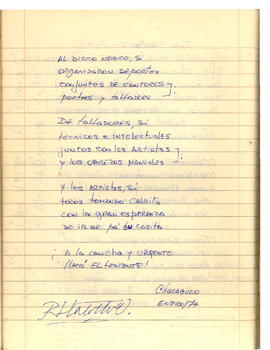 AL DIEGO NEGRO, SI
ORGANIZARON DEPORTES
CONJUNTOS DE CANTORES
POETAS Y TALLADORES
DE TALLADORES, SI
TECNICOS E INTELECTUALES
JUNTOS CON LOS ARTISTAS
Y LOS OBREROS MANUALES
Y LOS ARTISTAS, SI
TODOS TOMANDO CALDITO
CON LA GRAN ESPERANZA
DE IRSE PA' SU CASITA
¡ A LA CANCHA Y URGENTE
LLAMÓ EL TENIENTE!
CHACABUCO
ENERO/74